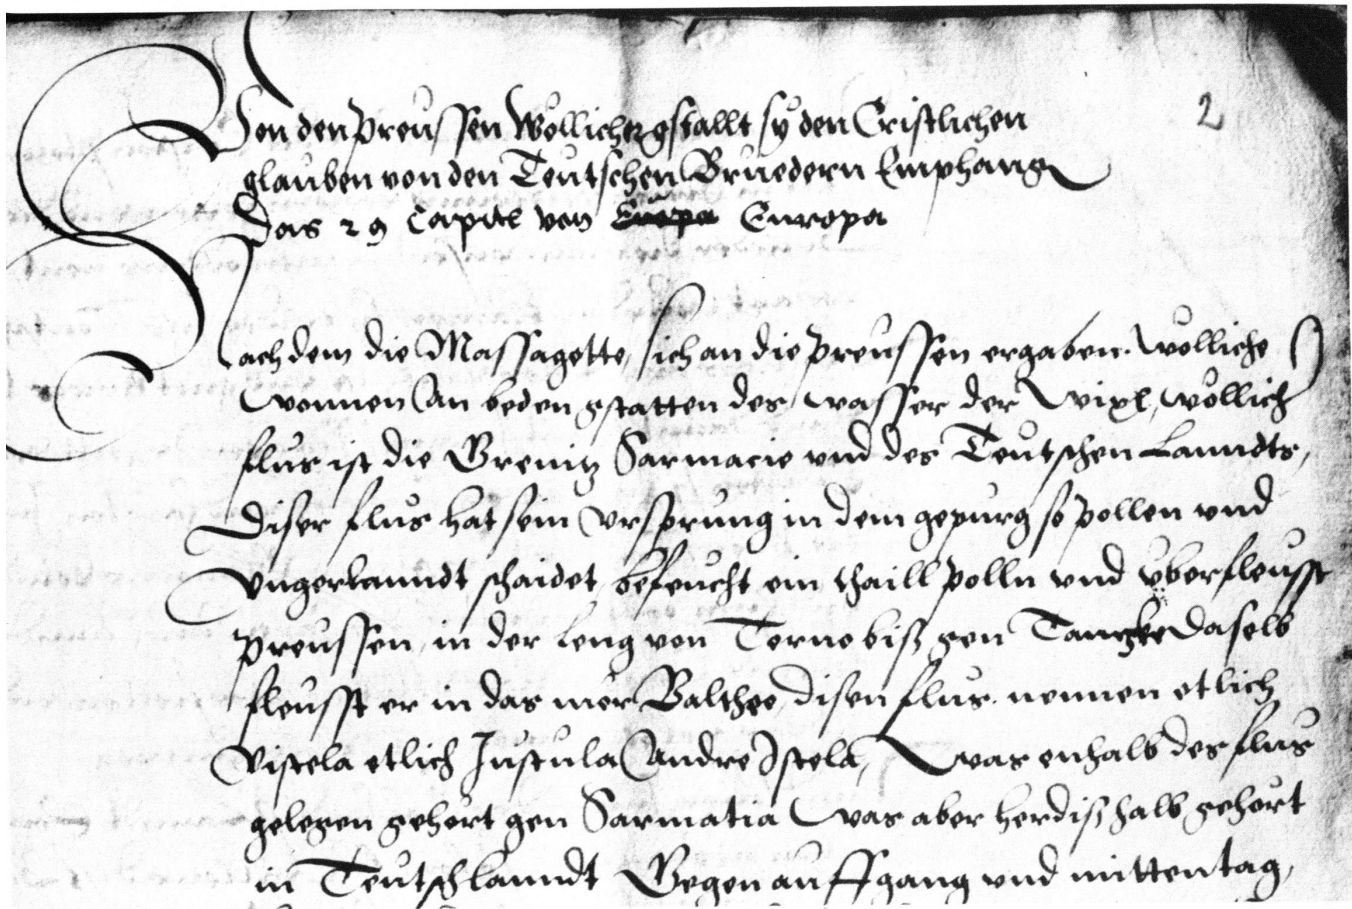 2
Von den Preussen Wöllicher gstallt sÿ den Cristlichen
glauben von den Teutschen Bruedern Emphang
Das 29 Capitl von Europa Europa
Nach dem die Massagette sich an die Preussen ergaben. wölliche
wonnen an beden gstatten des wasser der Wixl, wöllich
flus ist die Grenitz Sarmacie vnd des Teutschen Lanndts,
Diser flus hat sein Vrsprung in dem gepurg so Pollen vnd
Vngerlanndt schaidet, befeucht ein thaill Polln vnd vberfleusst
Preussen, in der Leng von Torno bis gen daselb
fleusst er in das mör Baltheo, disen flus nennen etlich
Vistela etlich Justula Andre Istela, Was enhalb des flus
gelegen gehört gen Sarmatia Was aber herdishalb gehört
in Teutschlanndt Gegen auffgang vnd mittentag,